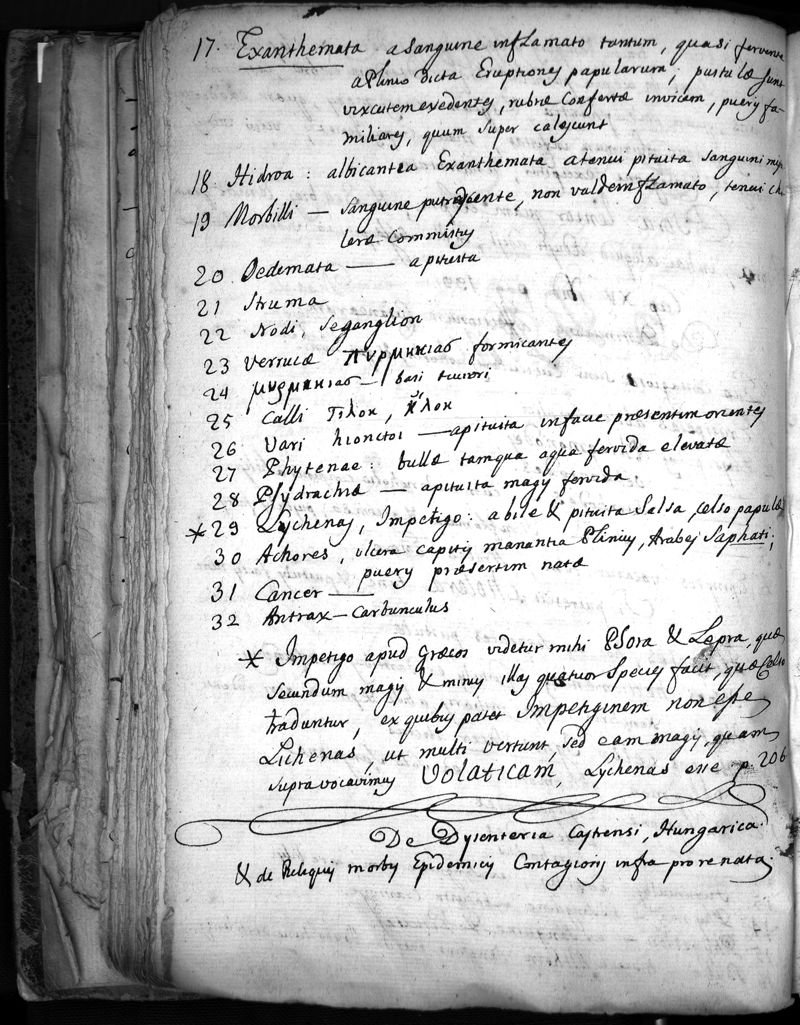 17. Exanthemata a sanguine inflamato tantum, quasi fervente
a Plinio dicta Eruptiones papularum; pustulæ sunt
vix cutem exedentes, rubræ confertæ invicem, pueris fa-
miliares, quum super calescunt
18 Hidroa: albicantea Exanthemata a tenui pituita sanguini
19 Morbilli — sanguine putrescente, non valde inflamato, tenui cho
leræ commistus
20 Oedemata — a pituita
21 Struma
22 Nodi, se ganglion
23 verrucæ formicantes
24 — basi
25 Calli
26 Vari — a pituita in facie præsertim orientes
27 Phytenae: bullæ tamqua aqua fervida elevatæ
28 Psydrachiæ — a pituita magis fervida
* 29 Lychenas, Impetigo: a bile & pituita salsa Celso papulæ
30 Achores, ulcera capitis manantia Plinius, Arabes Saphati;
pueris præsertim natæ
31 Cancer —
32 Antrax — Carbunculus
* Impetigo apud Græcos videtur mihi Psora & Lepra, quæ
secundum magis & minus illas quatuor species facit, quæ Celso
traduntur, ex quibus patet Impetiginem non esse
Lichenas, ut multi vertunt, sed eam magis, quam
supra vocavimus Volaticam, Lychenas esse p. 206
De Dysenteria Castrensi, Hungarica
& de Reliquis morbis Epidemicis Contagiosis infra pro re nata.